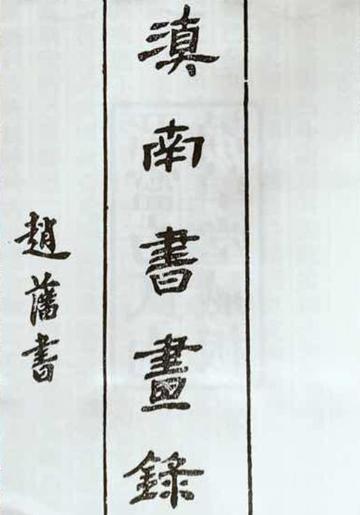 滇南書畫錄
趙藩書